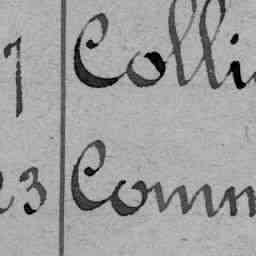 7 Colli
23 Comm